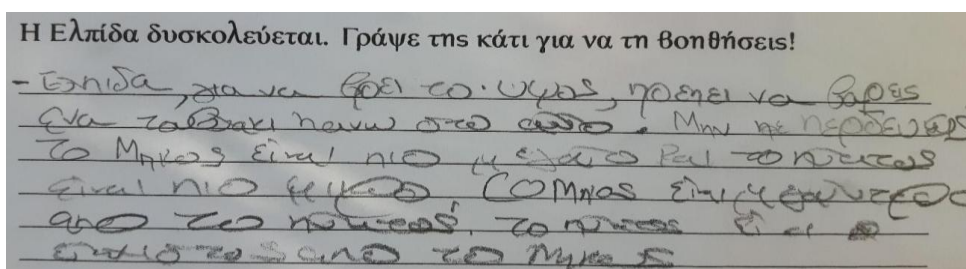 Η Ελπίδα δυσκολεύεται. Γράψε της κάτι για να τη βοηθήσεις!
- Ελπιδα, για να βρει το υψος, πρεπει να βαρες
ενα ταβακι πανω στο αυτο. Μην περδευερε
το Μηκος ειναι πιο μεγατο και το πλατος
ειναι πιο μικρο το Μηκος ειναι μεγαλυτερο
απο το πλατος, το πλατος
απο το Μηκος